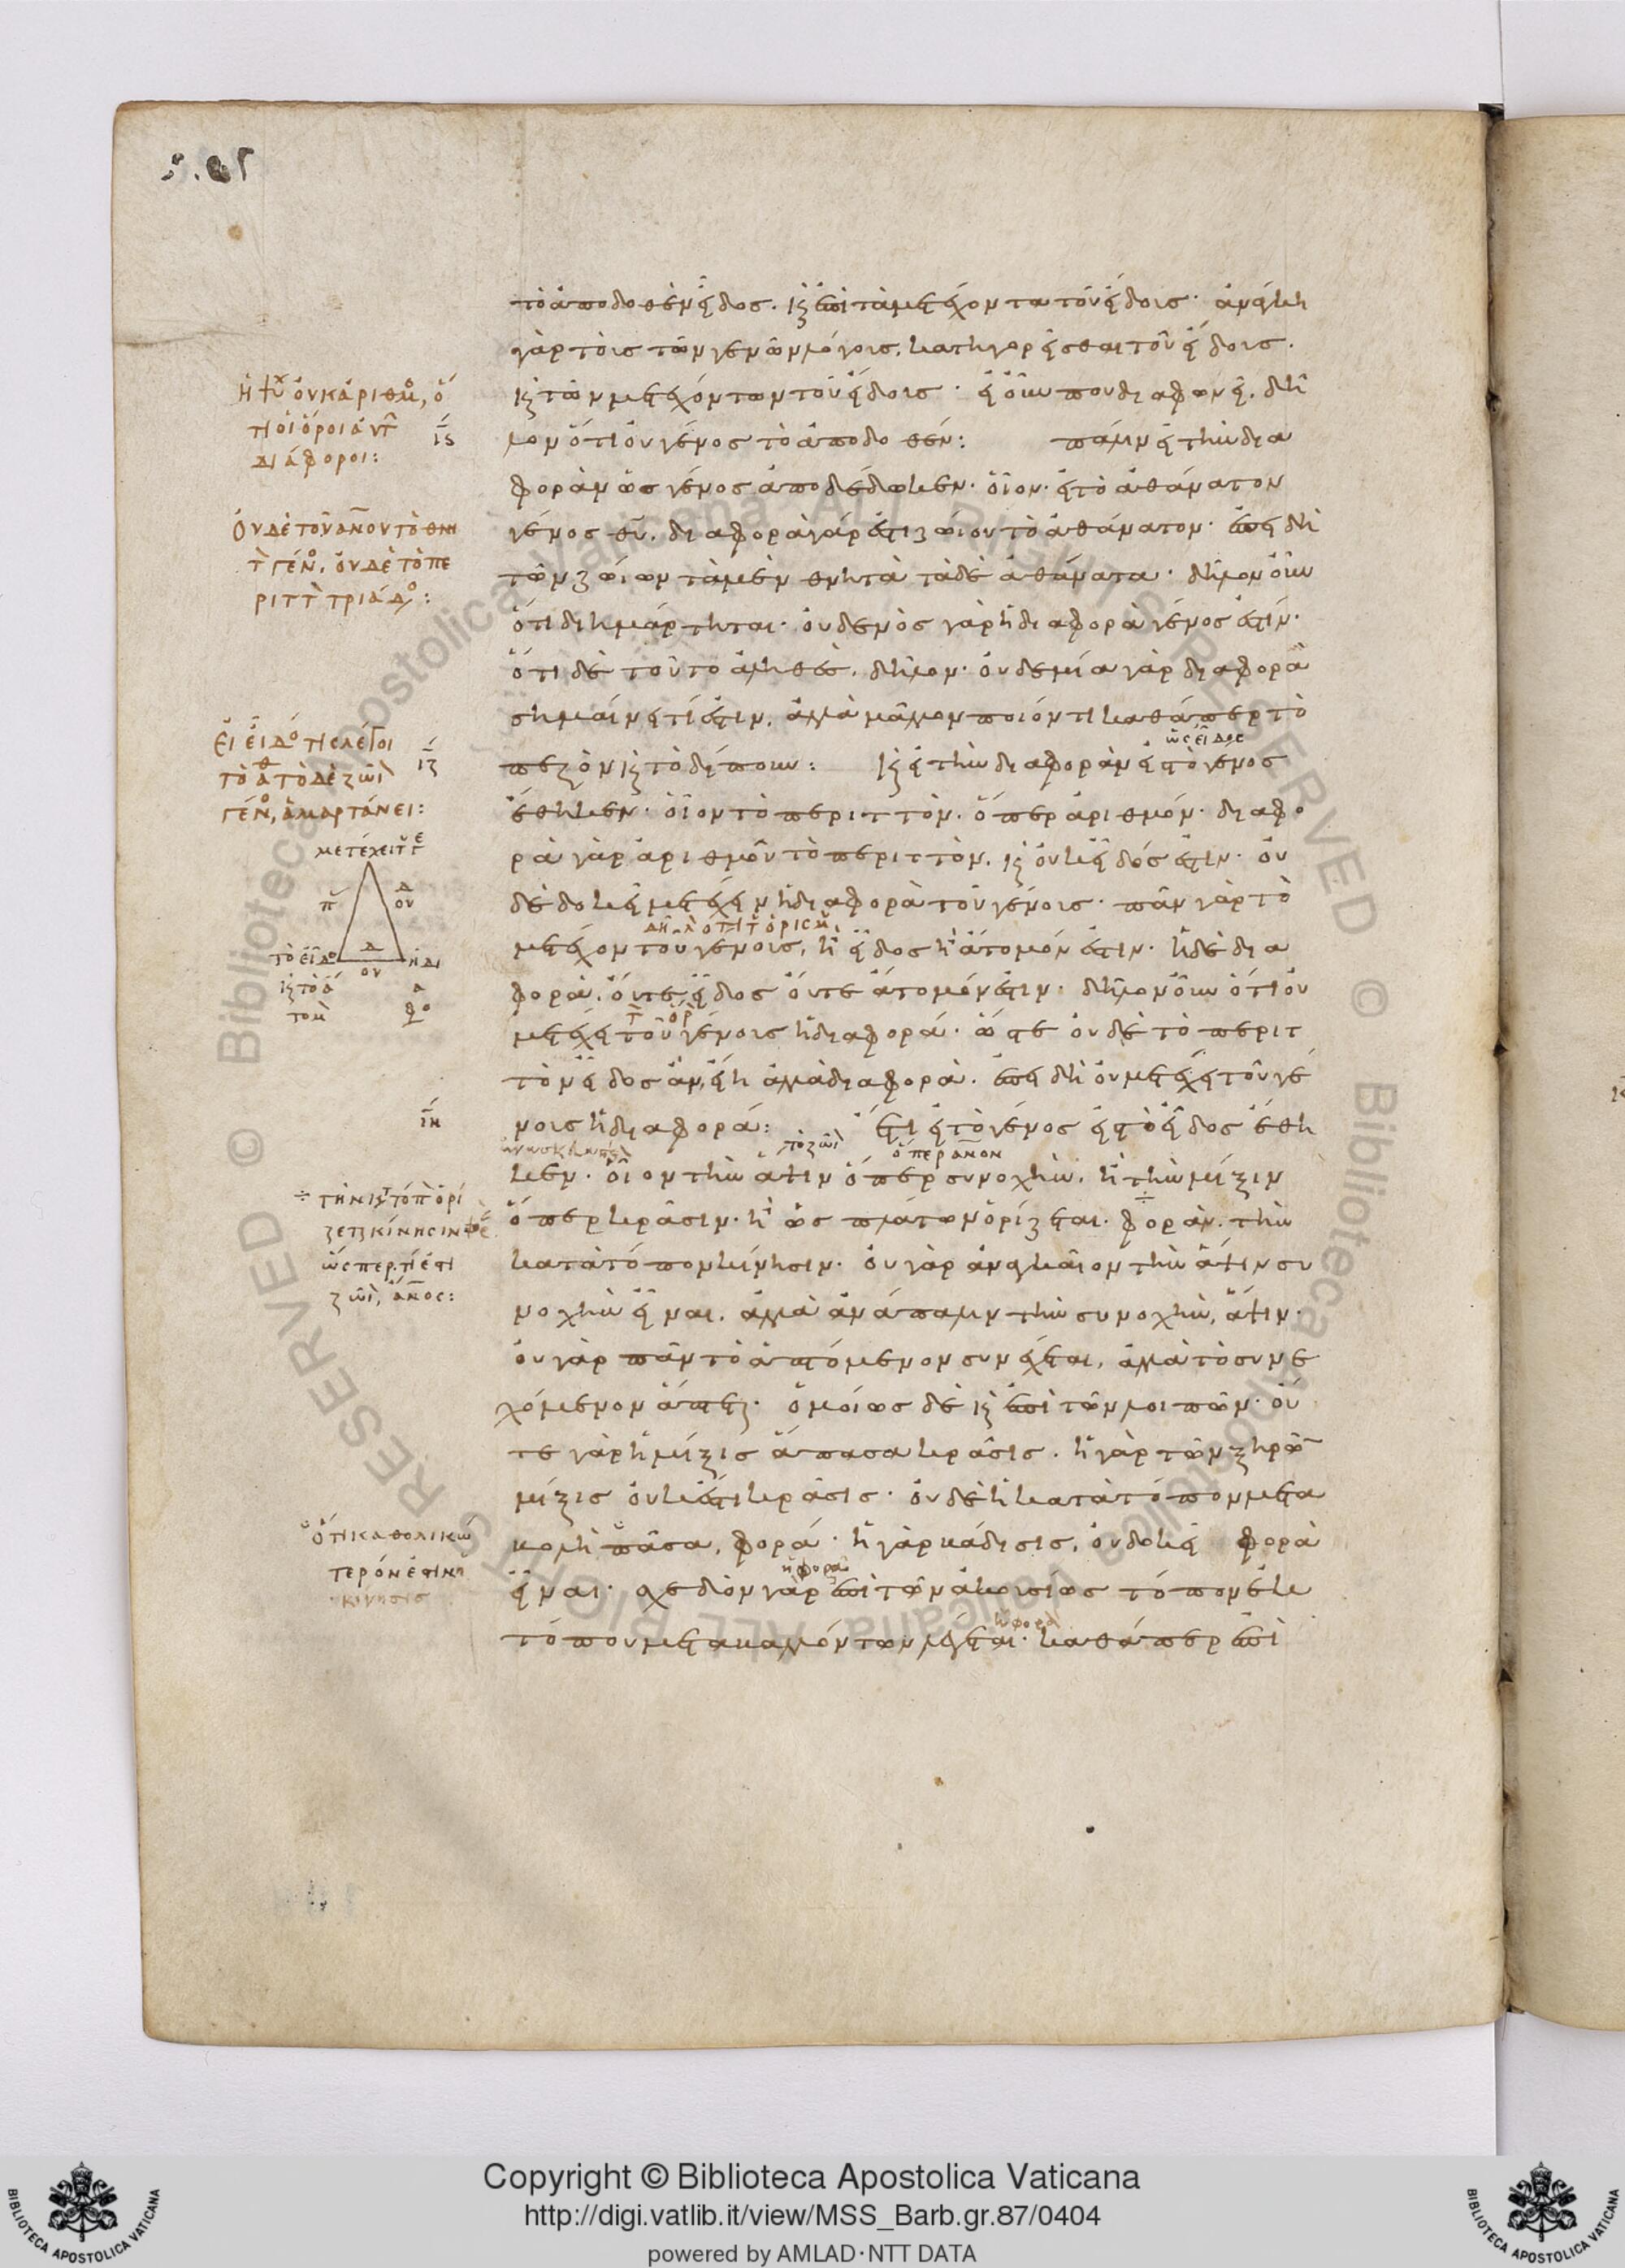 τὸ ἀποδοθὲν εἶδος. καὶ ἐπὶ τὰ μετέχοντα τοῦ εἴδους· ἀνάγκη
γὰρ τοὺς τῶν γενῶν λόγους, κατηγορεῖσθαι τοῦ εἴδους.
καὶ τῶν μετεχόντων τοῦ εἴδους· εἰ οὖν που διαφωνεῖ, δῆ
λον ὅτι οὐ γένος τὸ ἀποδοθέν: πάλιν εἰ τὴν δια
φορὰν ὡς γένος ἀποδέδωκεν· οἷον· εἰ τὸ ἀθάνατον
γένος θεοῦ. διαφορὰ γάρ ἐστι ζώιου τὸ ἀθάνατον· ἐπειδὴ
τῶν ζώιων τὰ μὲν θνητὰ τὰ δὲ ἀθάνατα· δῆλον οὖν
ὅτι διημάρτηται· οὐδενὸς γὰρ ἡ διαφορὰ γένος ἐστίν·
ὅτι δὲ τοῦτο ἀληθές, δῆλον· οὐδεμία γὰρ διαφορὰ
σημαίνει τί ἐστιν, ἀλλὰ μᾶλλον ποιόν τι καθάπερ τὸ
ὡς εἶδος
πεζὸν καὶ τὸ δίπουν: καὶ εἰ τὴν διαφορὰν εἰς τὸ γένος
ἔθηκεν· οἷον τὸ περιττὸν· ὅπερ ἀριθμόν· διαφο
ρὰ γὰρ ἀριθμοῦ τὸ περιττὸν, καὶ οὐκ εἶδός ἐστιν· οὐ
δὲ δοκεῖ μετέχειν ἡ διαφορὰ τοῦ γένους· πᾶν γὰρ τὸ
μετέχον τοῦ γένους, ἢ εἶδος ἢ ἄτομόν ἐστιν· ἡ δὲ δια
φορὰ, οὔτε εἶδος οὔτε ἄτομόν ἐστιν· δῆλον οὖν ὅτι οὐ
μετέχει τοῦ γένους ἡ διαφορά· ὥστε οὐδὲ τὸ περιτ
τὸν εἶδος ἂν εἴη ἀλλὰ διαφορὰ. ἐπειδὴ οὐ μετέχει τοῦ γέ
νους ἡ διαφορά: ἔτι εἰ τὸ γένος εἰς τὸ εἶδος ἔθη
τὸ ζῶιον ὅπερ ἄνον
κεν· οἷον τὴν ἅψιν ὅπερ συνοχὴν, ἢ τὴν μίξιν
ὅπερ κρᾶσιν· ἢ ὡς πλάτων ὁρίζεται· φορὰν, τὴν
κατὰ τόπον κίνησιν· οὐ γὰρ ἀναγκαῖον τὴν ἅψιν συ
νοχὴν εἶναι. ἀλλὰ ἀνάπαλιν τὴν συνοχὴν, ἅψιν·
οὐ γὰρ πᾶν τὸ ἁπτόμενον συνέχεται, ἀλλὰ τὸ συνε
χόμενον ἅπτεται· ὁμοίως δὲ καὶ ἐπὶ τῶν λοιπῶν· οὔ
τε γὰρ ἡ μίξις ἅπασα κρᾶσις. ἡ γὰρ τῶν ξηρῶν
μίξις οὐκ ἔστι κρᾶσις· οὐδὲ ἡ κατὰ τόπον μετα
βολὴ πᾶσα, φορά· ἡ γὰρ βάδισις, οὐ δοκεῖ φορὰ
ἡ φορὰ
εἶναι· σχεδὸν γὰρ ἐπὶ τῶν ἀκουσίως τόπον ἐκ
ἡ φορὰ
τόπου μεταβαλλόντων λέγεται· καθάπερ ἐπὶ
ὅτι οἱ ὅροι
διάφοροι:
ις
ιζ
γέν, ἁμαρτάνει:
μετέχει
τὸ εἶδ
ιη
ὥσπερ τί ἐστι
ὅτι καθολικώ
τερόν ἐστιν ἡ
κίνησις
Copyright © Biblioteca Apostolica Vaticana
http://digi.vatlib.it/view/MSS_Barb.gr.87/0404
powered by AMLAD·NTT DATA
BIBLIOTECA APOSTOLICA VATICANA
BIBLIOTECA APOSTOLICA VATICANA